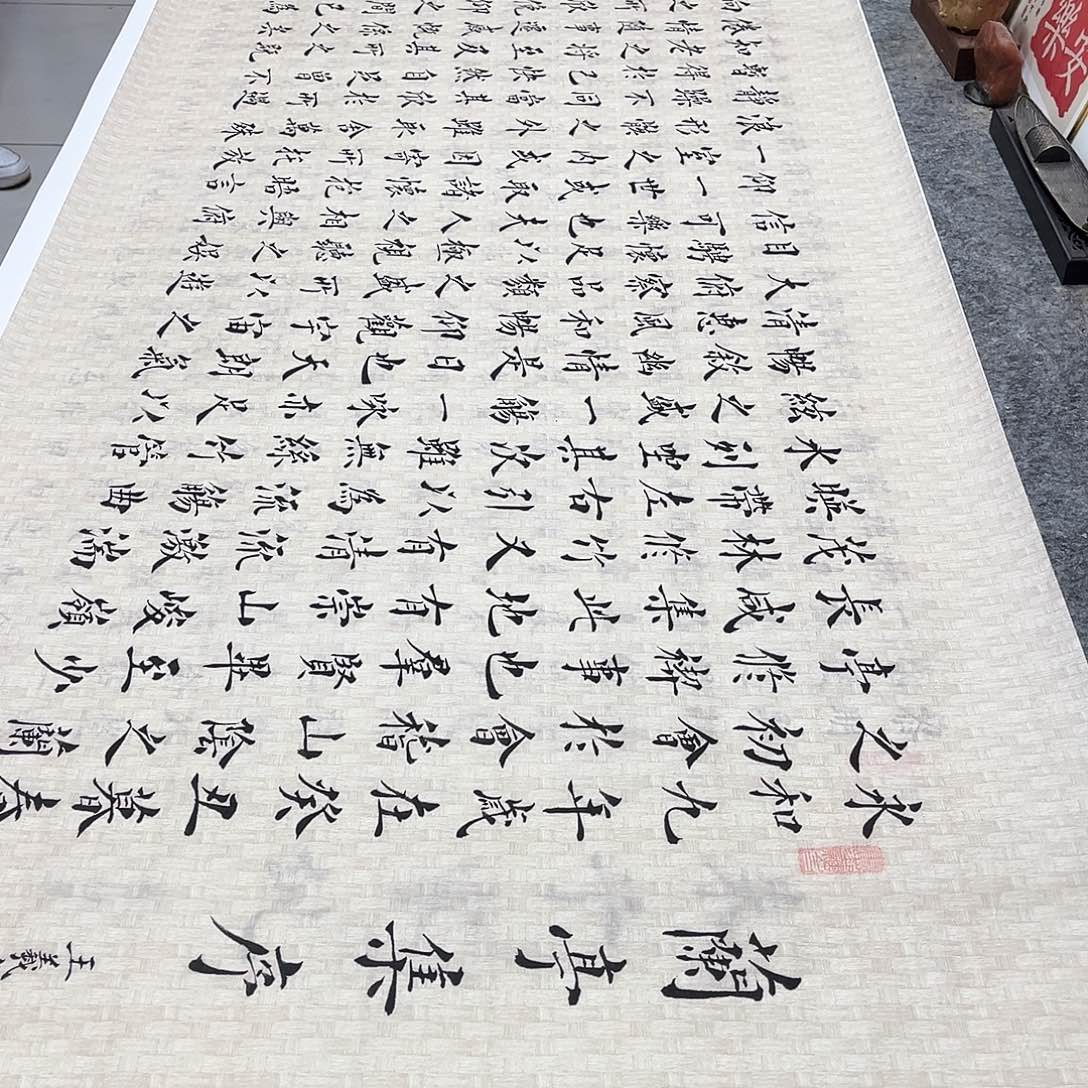 蘭亭集序
王羲
永和九年歲在癸丑暮春
之初會於會稽山陰之蘭
亭修禊事也羣賢畢至少
長咸集此地有崇山峻嶺
茂林修竹又有清流激湍
映帶左右引以為流觴曲
水列坐其次雖無絲竹管
絃之盛一觴一詠亦足以
暢敘幽情是日也天朗氣
清惠風和暢仰觀宇宙之
大俯察品類之盛所以遊
目騁懷足以極視聽之娛
信可樂也夫人之相與俯
仰一世或取諸懷抱晤言
一室之內或因寄所托放
浪形骸之外雖取舍萬殊
靜躁不同當其欣於所遇
暫得於己快然自足曾不
知老之將至及其所之既
倦情隨事遷感慨係之矣
向之所欣俛仰之間已為